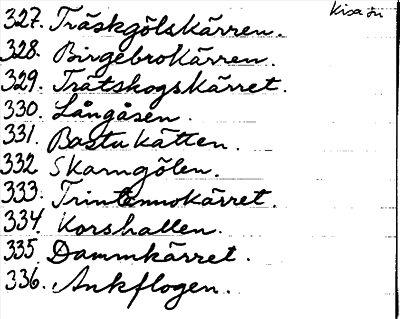 Kisa sn
327. Träskgölskärren.
328. Birgebrokärren.
329. Trätskogskärret.
330. Långåsen.
331. Bastukätten.
332 Skarngölen.
333. Trintemokärret.
334. Korshallen.
335 Dammkärret.
336. Ankflogen.